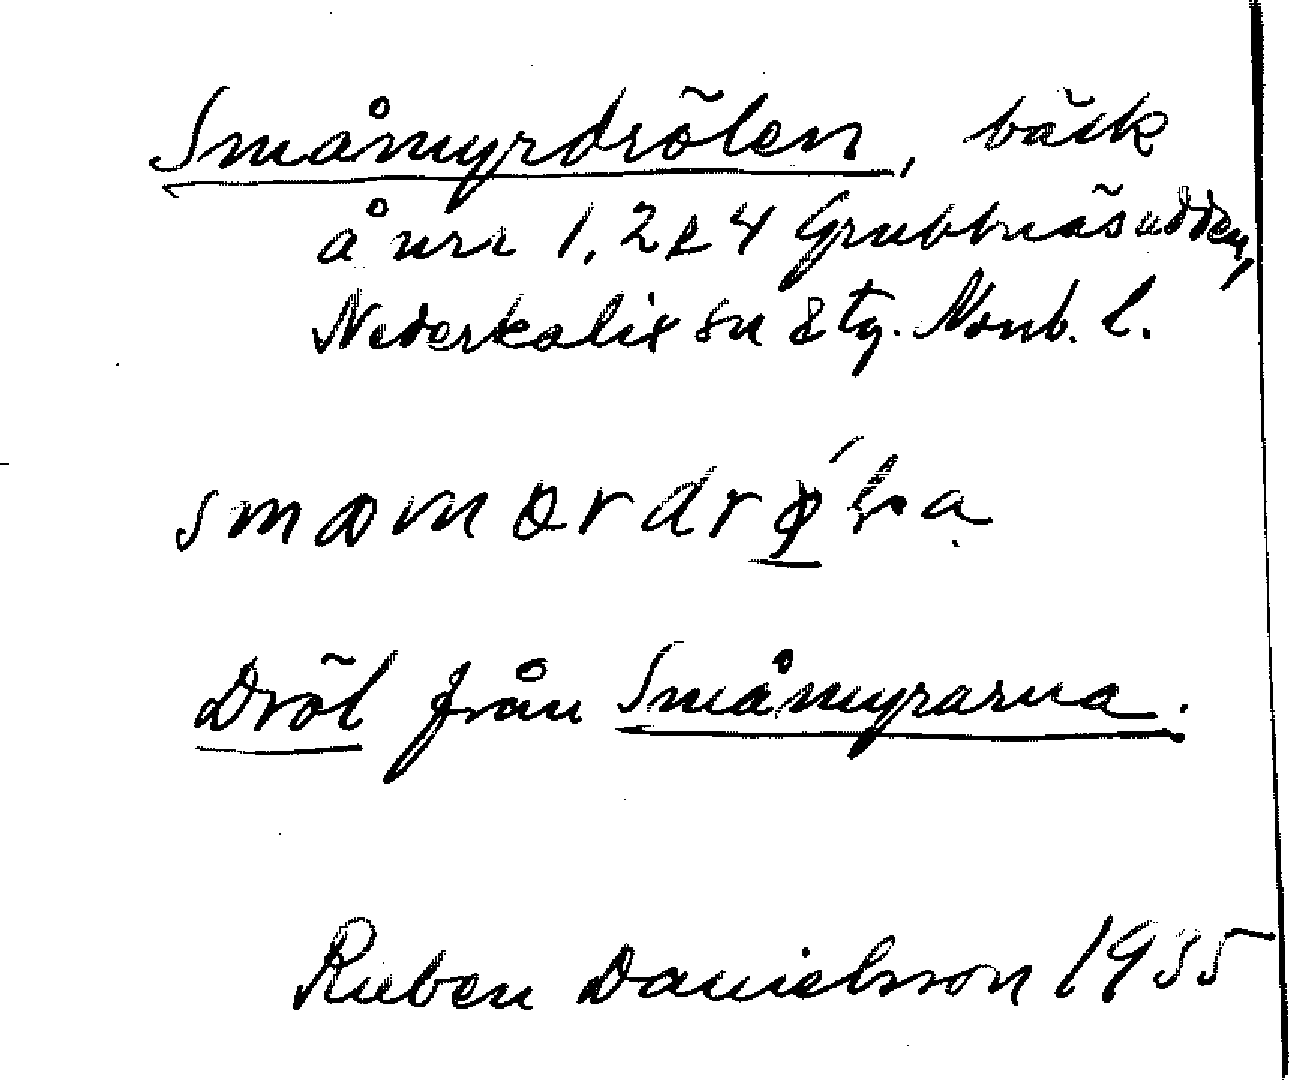 Småmyrdrölen, bäck
å nrr 1, 2 & 4 Grubbnäsudden,
Nederkalix sn & tg. Norrb. l.
Dröl från Småmyrarna.
Ruben Danielsson 1935